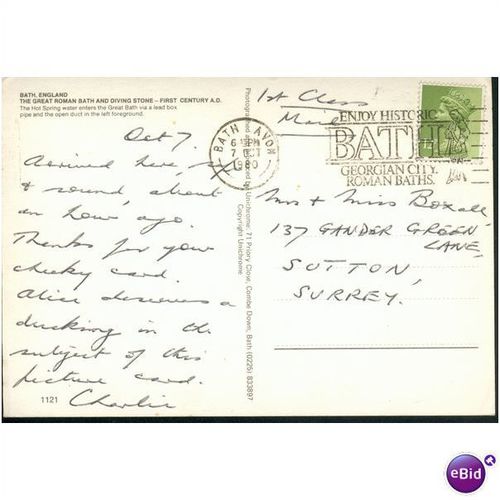 BATH, ENGLAND
THE GREAT ROMAN BATH AND DIVING STONE – FIRST CENTURY A.D.
The Hot Spring water enters the Great Bath via a lead box
pipe and the open duct in the left foreground.
Oct 7.
Arrived here, six
& round about
an hour ago.
Thanks for your
cheeky card.
Alice deserves a
ducking in the
subject of this
picture card.
Charlie
1121
Photographed and designed by Unichrome: 71 Priory Close, Combe Down, Bath (0225) 833897
Copyright Unichrome
1st Class
Mail
BATH AVON
6 PM
7 OCT
1980
ENJOY HISTORIC
BATH
GEORGIAN CITY.
ROMAN BATHS.
Mr & Miss Boxall
137 GANDER GREEN
LANE,
SUTTON,
SURREY.
eBid